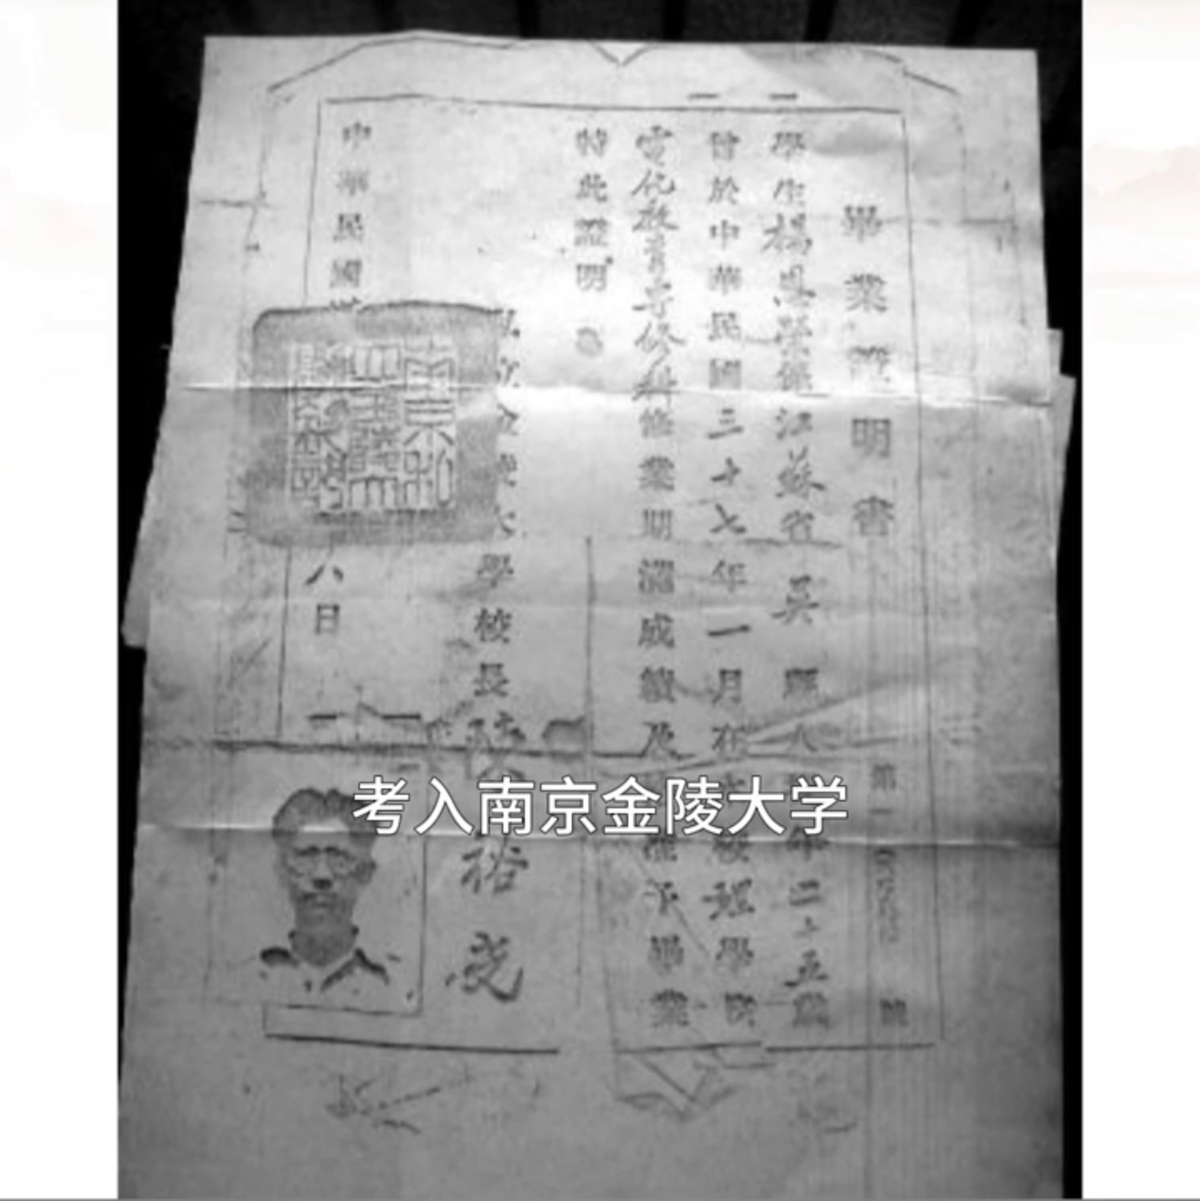 畢業證明書
第一 號
學生楊恩 係江蘇省吳縣人 年二十五歲
曾於中華民國三十七年一月在 校理學院
電化教育專修科修業期滿成績及 准予畢業
特此證明
私立金陵大學校長陳裕光
中華民國 八日
南京私
考入南京金陵大学